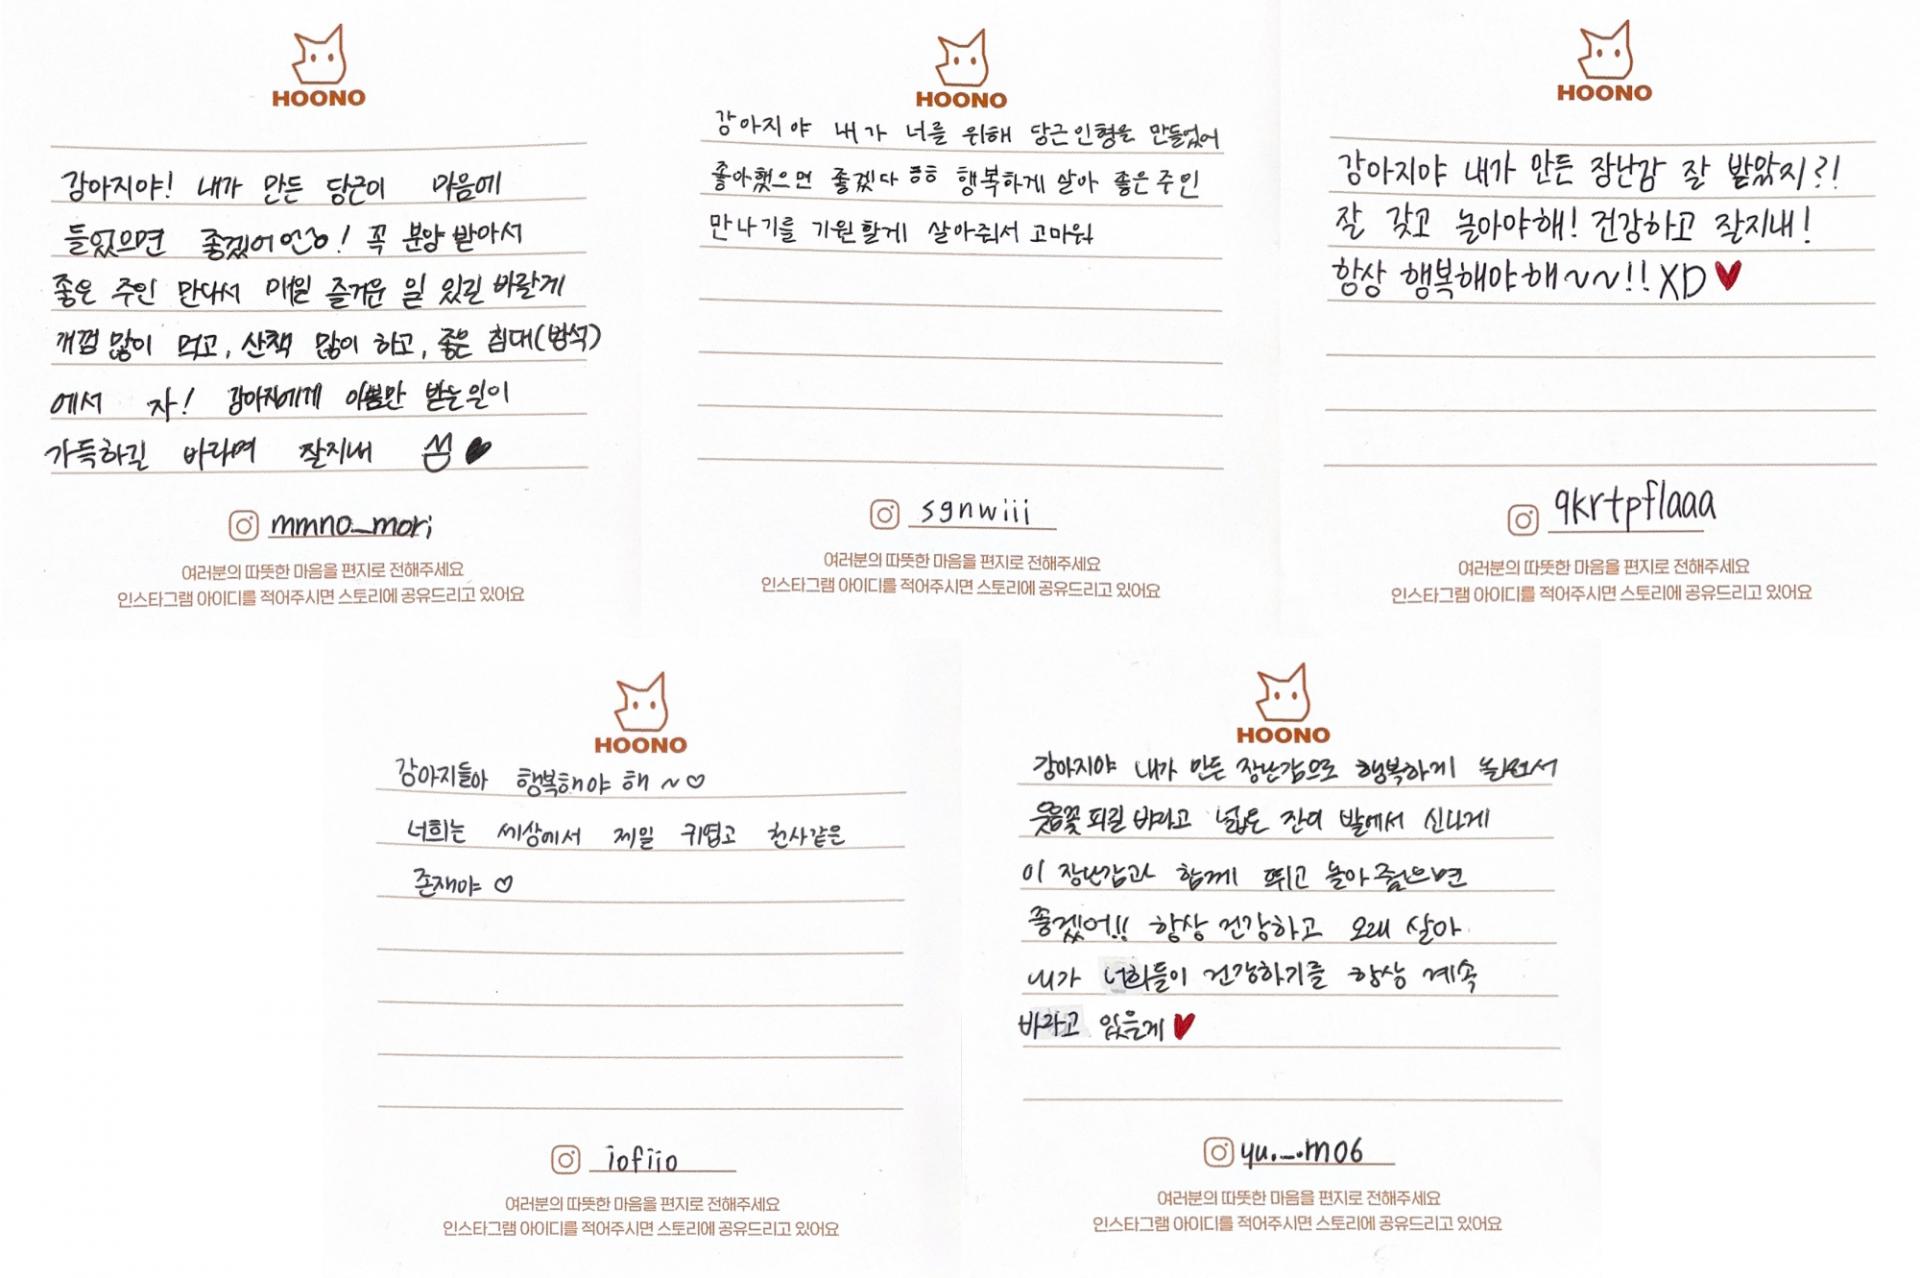 HOONO
강아지야! 내가 만든 당근이 마음에
들었으면 좋겠어 ! 꼭 분양 받아서
좋은 주인 만나서 매일 즐거운 일 있길 바랄게
개껌 많이 먹고, 산책 많이 하고, 좋은 침대(방석)
에서 자! 강아지에게 이쁨만 받는 일이
가득하길 바라며 잘지내
mmno_mori
여러분의 따뜻한 마음을 편지로 전해주세요
인스타그램 아이디를 적어주시면 스토리에 공유드리고 있어요
HOONO
강아지야 내가 너를 위해 당근인형을 만들었어
좋아했으면 좋겠다 ㅎㅎ 행복하게 살아 좋은 주인
만나기를 기원할게 살아줘서 고마워
sgnwiii
여러분의 따뜻한 마음을 편지로 전해주세요
인스타그램 아이디를 적어주시면 스토리에 공유드리고 있어요
HOONO
강아지야 내가 만든 장난감 잘 받았지?!
잘 갖고 놀아야해! 건강하고 잘지내!
항상 행복해야해~~!! XD♥
qkrtpflaaa
여러분의 따뜻한 마음을 편지로 전해주세요
인스타그램 아이디를 적어주시면 스토리에 공유드리고 있어요
HOONO
강아지들아 행복해야 해~♡
너희는 세상에서 제일 귀엽고 천사같은
존재야♡
iofiio
여러분의 따뜻한 마음을 편지로 전해주세요
인스타그램 아이디를 적어주시면 스토리에 공유드리고 있어요
HOONO
강아지야 내가 만든 장난감으로 행복하게 놀면서
웃음꽃 피길 바라고 넓은 잔디 밭에서 신나게
이 장난감과 함께 뛰고 놀아 줬으면
좋겠어!! 항상 건강하고 오래 살아
내가 너희들이 건강하기를 항상 계속
바라고 있을게♥
yu._.m06
여러분의 따뜻한 마음을 편지로 전해주세요
인스타그램 아이디를 적어주시면 스토리에 공유드리고 있어요